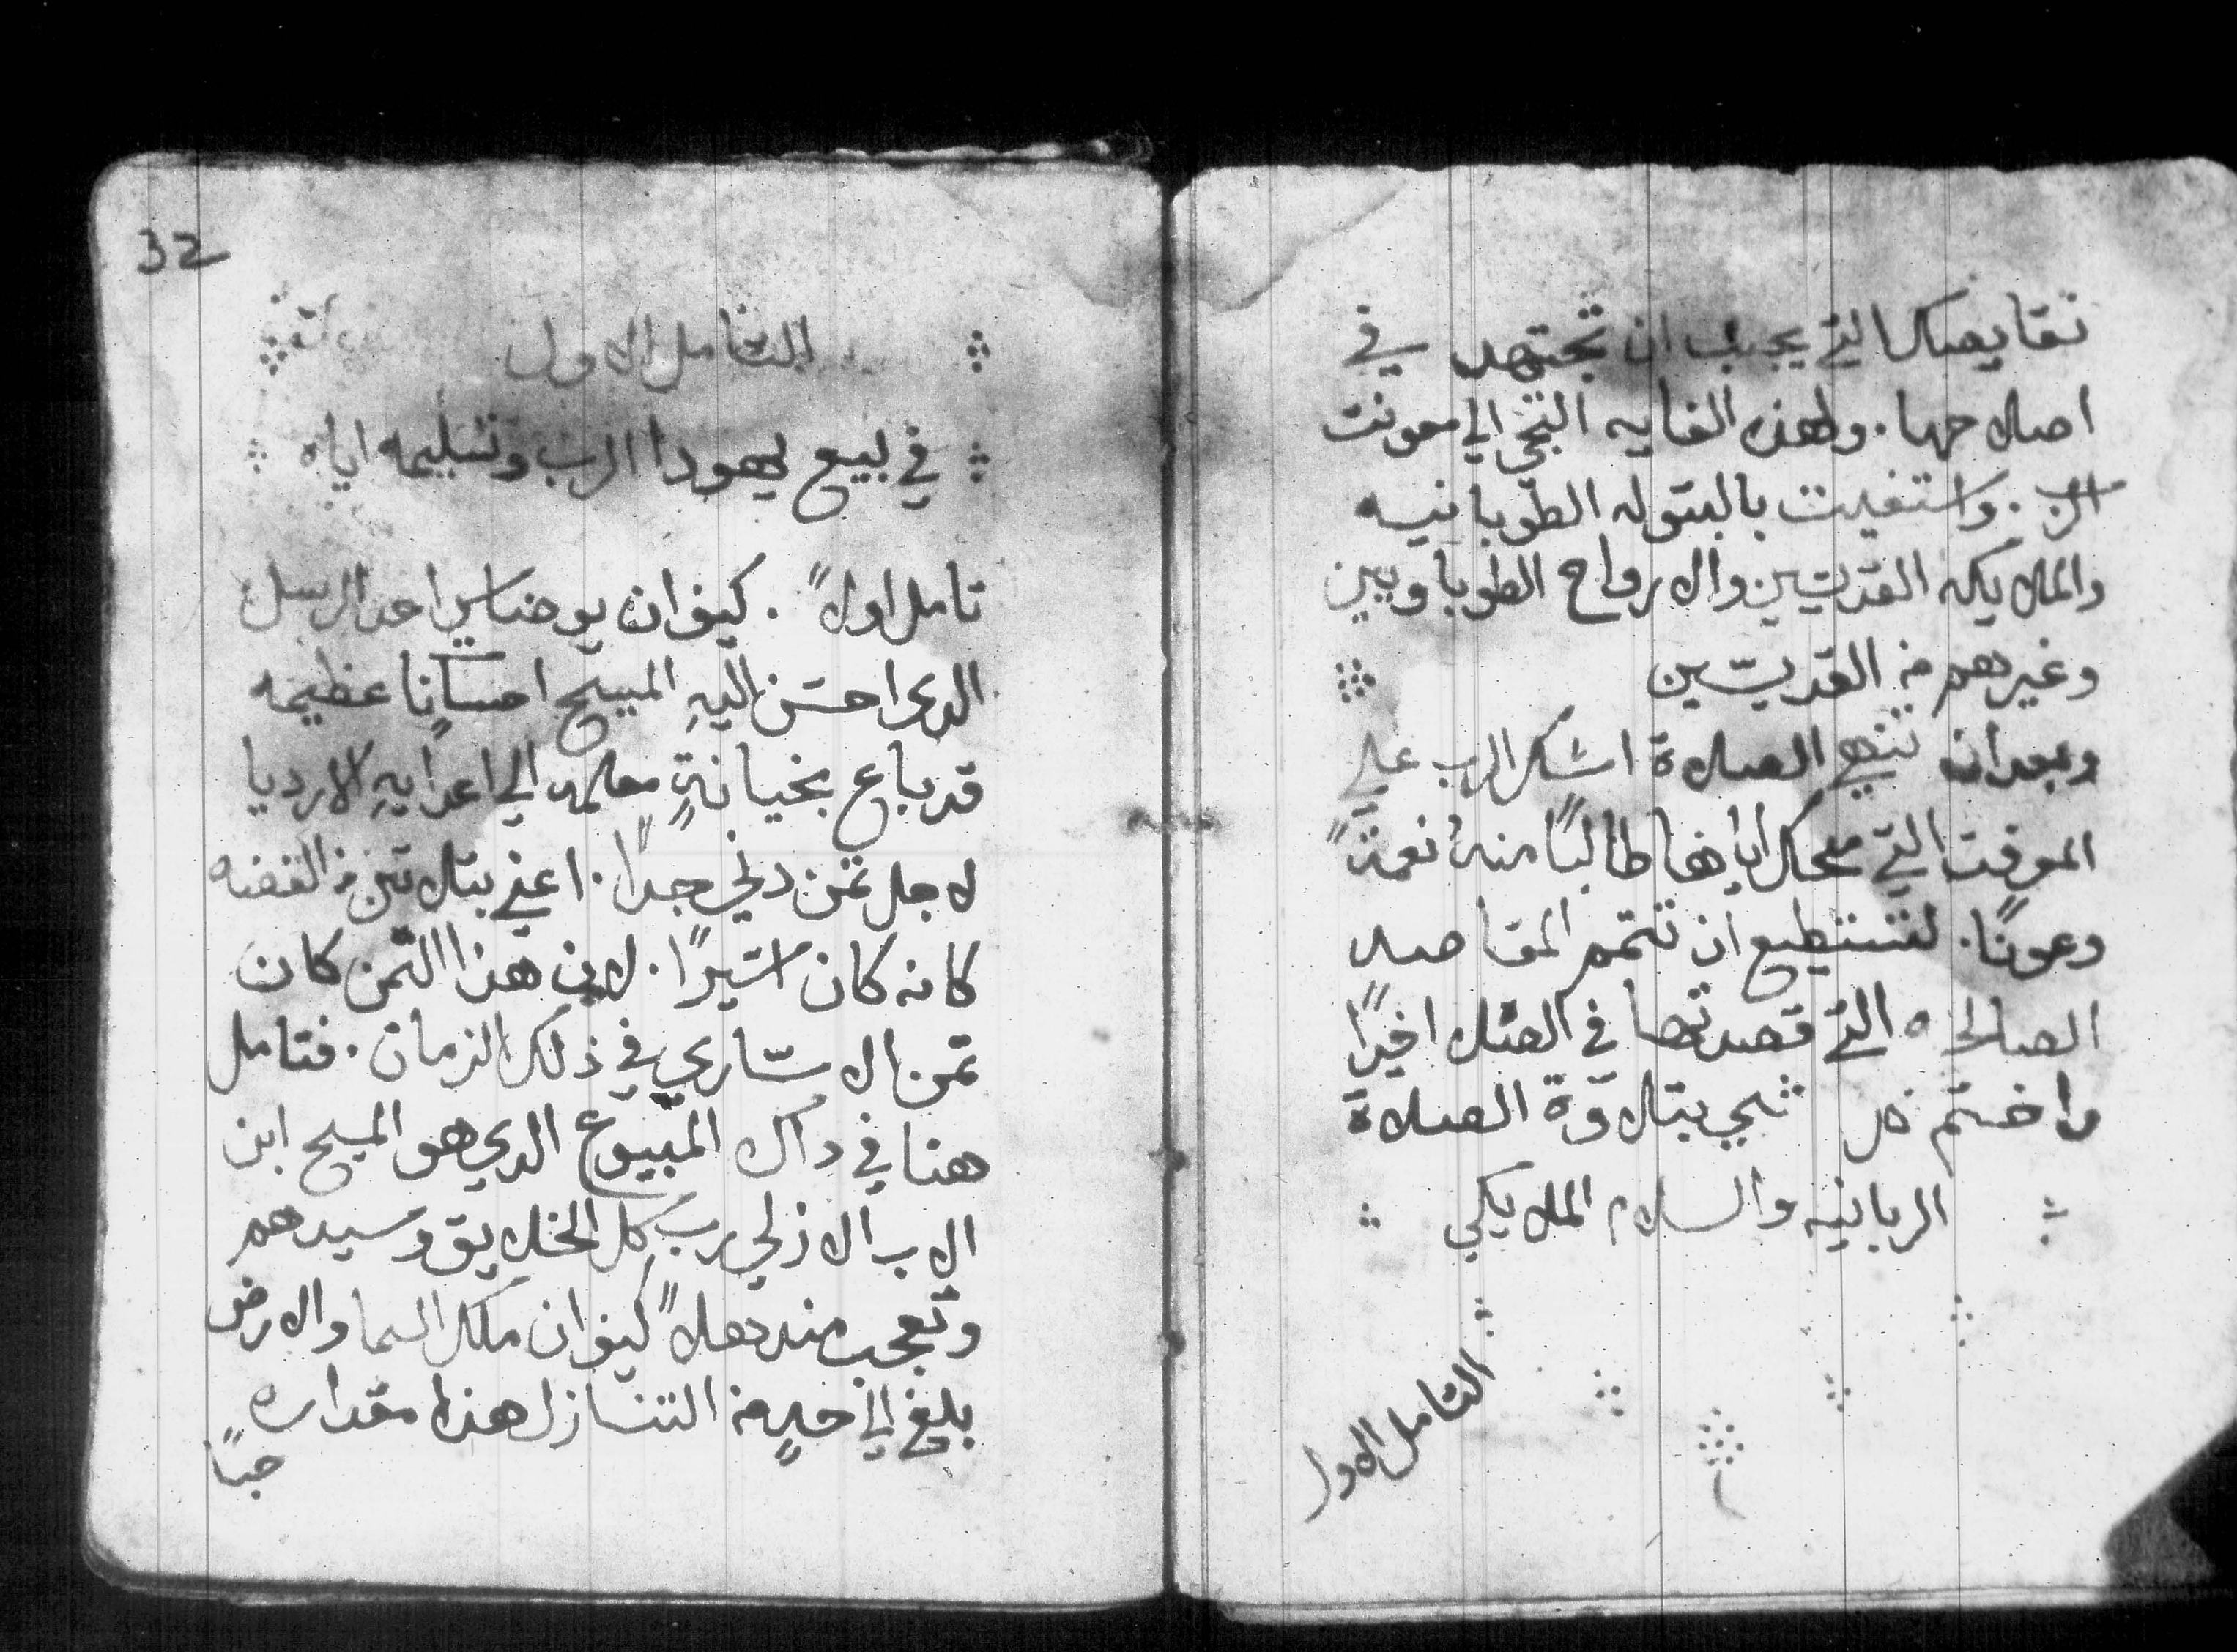 نقايصك التي يجب ان تجتهد في
اصلاحها. ولهذه الغايه التجي الي معونت
الرب. واستغيت بالبتوله الطوبانيه
والملايكه القديسين والارواح الطوباويين
وغيرهم من القديسين
وبعد ان تنهي الصلاة اشكر الرب علي
الموقت التي منحك اياها طالبًا منه نعمةً
وعونًا. لتستطيع ان تتمم المقاصد
الصالحه التي قصدتها في الصلا اخيرًا
واختم كل شي بتلاوة الصلاة
الربانيه والسلام الملايكي
التامل الاول
32
التامل الاول
في بيع يهودا الرب وتسليمه اياه
تامل اولاً. كيف ان يوضاس احد الرسل
الدي احسَن اليهِ المسيح احسانًا عظيمه
قد باع بخيانةٍ معلمه الي اعدايهِ الارديا
لاجل تمن دني جدًا. اعني بتلاتين من الفضه
كانه كان اسيرًا. لان هذا التمن كان
تمن الاساري في ذلك الزمان. فتامل
هنا في داك المبيوع الدي هو المسيح ابن
الاب الازلي رب كل الخلايق وسيدهم
وتعجب مندهلاً كيف ان ملك السما والارض
بلغ الي حدٍ من التنازل هذا مقداره
حبًا